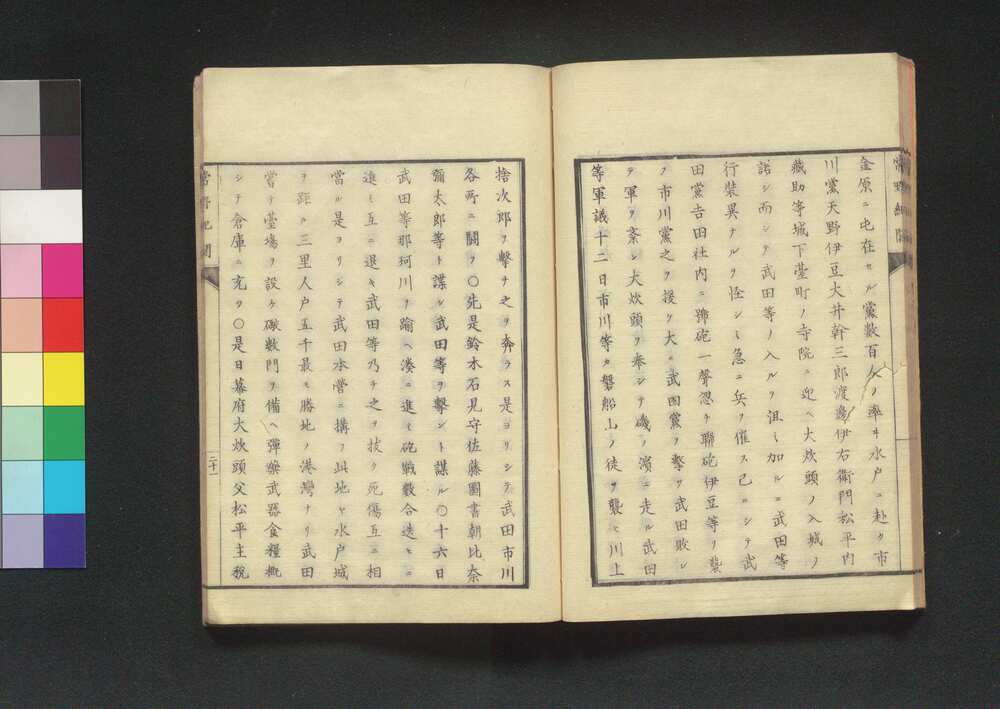 金原ニ屯在セル黨數百人ノ率ヰ水戸ニ赴ク市
川黨天野伊豆大井幹三郎渡邊伊右衞門松平内
藏助等城下臺町ノ寺院ニ迎ヘ大炊頭ノ入城ノ
諾シ而シテ武田等ノ入ルヲ沮ミ加ルニ武田等
行裝異ナルヲ怪シミ急ニ兵ヲ催ス己ニシテ武
田黨吉田社内ニ 砲一聲忽チ聯砲伊豆等ヲ襲
フ市川黨之ヲ援ケ大ニ武田黨ヲ擊ツ武田敗レ
テ軍ヲ紊シ大炊頭ヲ奉シテ磯ノ濱ニ走ル武田
等軍議十二日市川等カ磐船山ノ徒ヲ襲ヒ川上
捨次郎ヲ擊チ之ヲ奔ラス是ヨリシテ武田市川
各所ニ鬪フ〇先是鈴木石見守佐藤圖書朝比奈
彌太郎等ト謀シ武田等ヲ擊ント謀ル〇十六日
武田等那珂川ヲ踰ヘ湊ニ進ミ砲戰數合迭ヒニ
進ミ互ニ退キ武田等乃チ之ヲ拔ク死傷互ニ相
當ル是ヨリシテ武田本營ニ構フ此地ヤ水戸城
ヲ距ル三里人戸五千最モ勝地ノ港灣ナリ武田
嘗テ臺場ヲ設ケ礮數門ヲ備ヘ彈藥武器金糧概
シテ倉庫ニ充ツ〇是日幕府大炊頭父松平主税
二十一